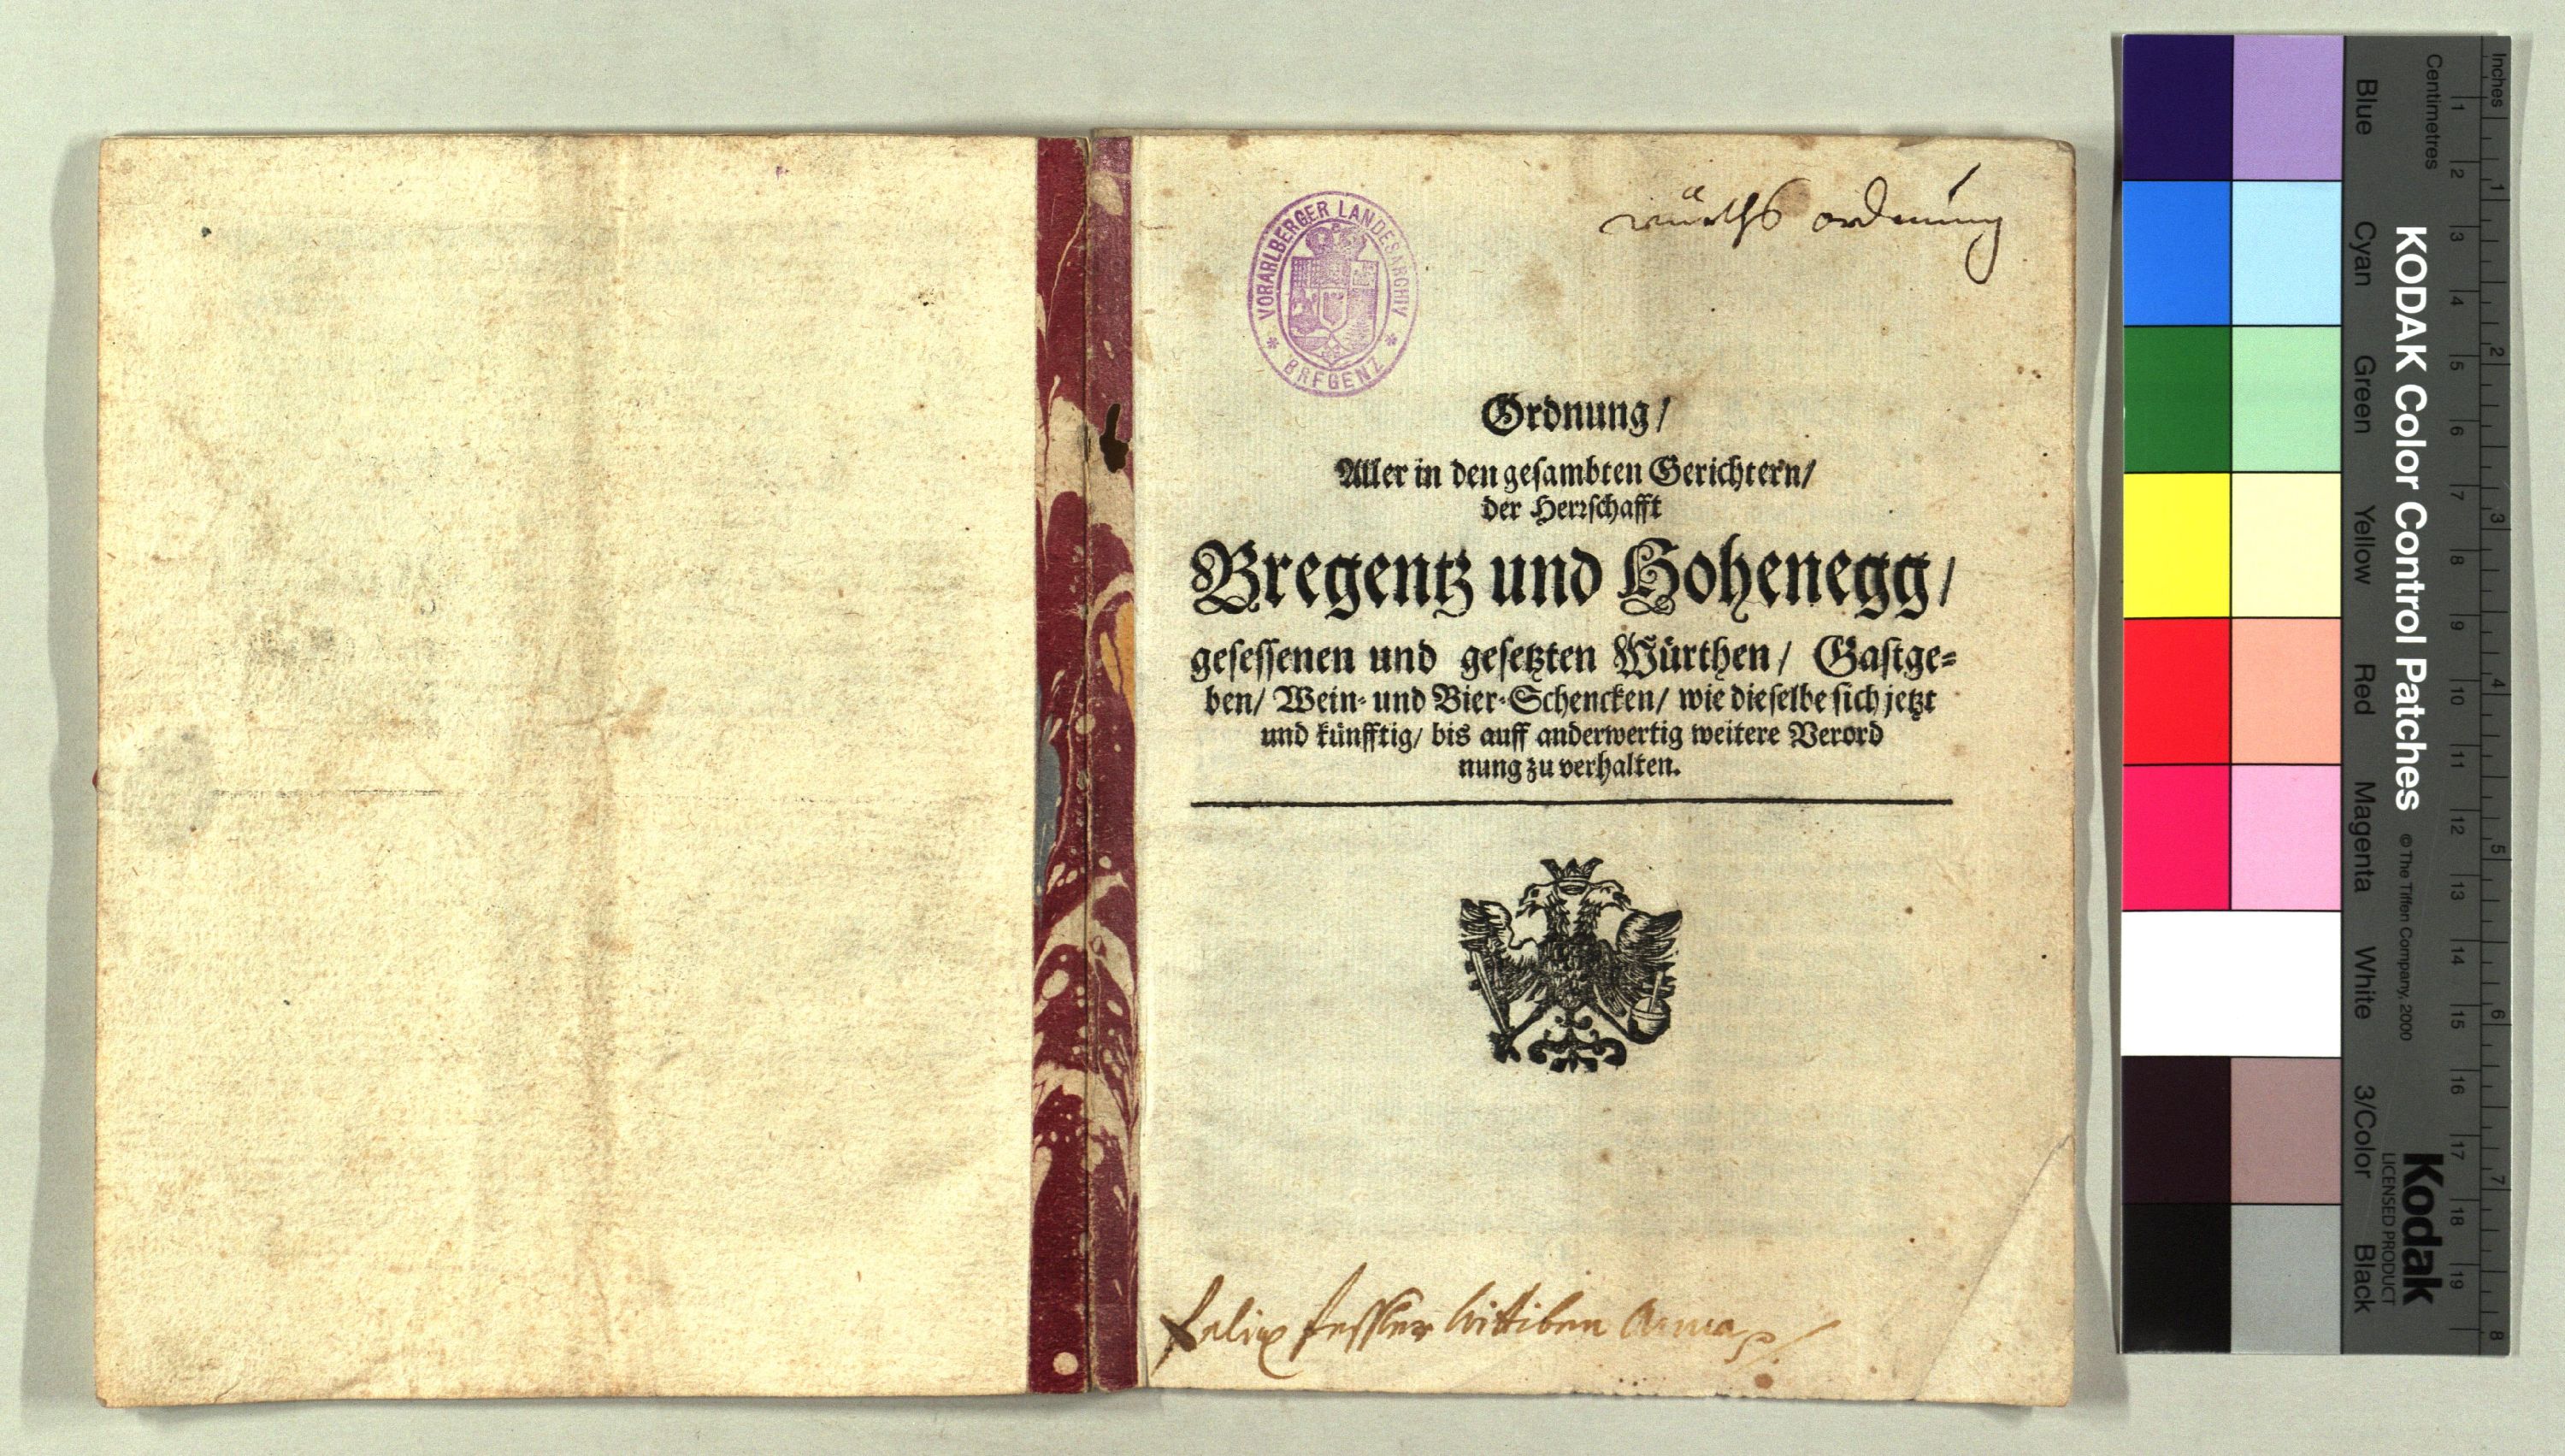 würths ordnung
VORARLBERGER LANDESARCHIV
* BREGENZ *
Ordnung/
Aller in den gesambten Gerichtern/
der Herrschafft
Bregentz und Hohenegg/
gesessenen und gesetzten Würthen/ Gastge-
ben/ Wein- und Bier-Schencken/ wie dieselbe sich jetzt
und künfftig/ bis auff anderwertig weitere Verord
nung zu verhalten.
felix fessler
Inches 1 2 3 4 5 6 7 8
Centimetres 1 2 3 4 5 6 7 8 9 10 11 12 13 14 15 16 17 18 19
KODAK Color Control Patches © The Tiffen Company, 2000
Kodak
LICENSED PRODUCT
Blue Cyan Green Yellow Red Magenta White 3/Color Black